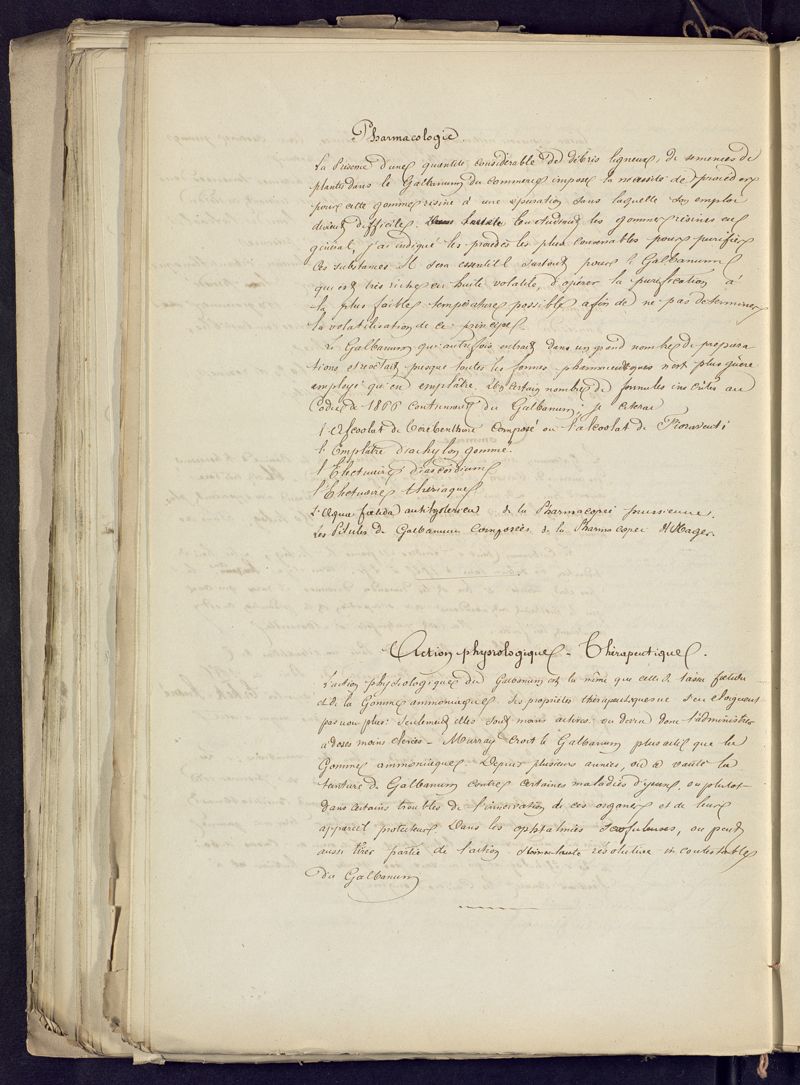 Pharmacologie.
La Présence d'une quantité considérable de débris ligneux, de semences de
plantes dans le Galbanum du commerce impose la nécessité de procéder
pour cette gomme résine à une épuration sans laquelle son emploi
devient difficile. En étudiant les gommes résines en
général, j'ai indiqué les procédés les plus convenables pour purifier
ces substances. Il sera essentiel surtout pour le Galbanum
qui est très riche en huile volatile, d'opérer la purification à
la plus faible température possible, afin de ne pas déterminer
la volatilisation de ce principe.
Le Galbanum qui autrefois entrait dans un grand nombre de prépara
tions et revêtait presque toutes les formes pharmaceutiques n'est plus guère
employé qu'en emplâtre. Un certain nombre de formules insérées au
Codex de 1866 contiennent du Galbanum; je citerai
l'Alcoolat de Térébenthine composé ou l'alcoolat de Fioraventi
l'Emplâtre diachylon gommé.
l'Electuaire diascordium
l'Electuaire thériaque
L'Aqua foetida antihysterica de la Pharmacopée prussienne.
Les Pilules de Galbanum composées de la Pharmacopée Hager.
Action physiologique - Thérapeutique.
L'action physiologique du Galbanum est la même que celle de l'asa foetida
et de la Gomme ammoniaque. Ses propriétés thérapeutiques ne s'en éloignent
pas non plus: seulement elles sont moins actives: on devra donc l'administrer
à doses moins élevées - Murray croit le Galbanum plus actif que la
Gomme ammoniaque. Depuis plusieurs années, on a vanté la
teinture de Galbanum contre certaines maladies d'yeux, ou plutot
dans certains troubles de l'innervation de ces organes et de leur
appareil protecteur. Dans les ophtalmies scrofuleuses, on peut
aussi tirer partie de l'action stimulante résolutive incontestable
du Galbanum